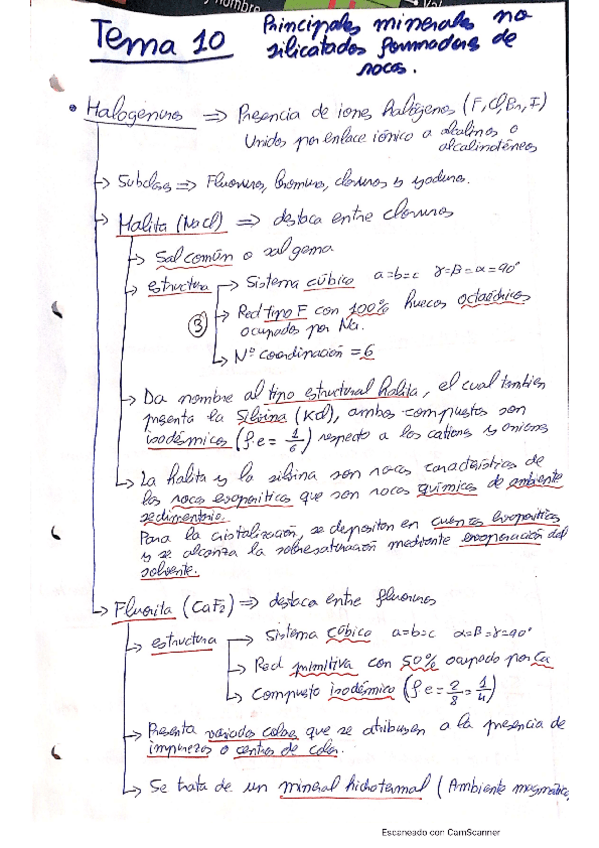 nombre
Tema 10 Principales minerales no
silicatados formadores de
rocas.
• Halogenuros ⇒ Presencia de iones halógenos (F, Cl, Br, I)
Unidos por enlace iónico a alcalinos o
alcalinotérreos
→ Subclases ⇒ Fluoruros, bromuros, cloruros y yoduros.
→ Halita (NaCl) ⇒ destaca entre cloruros
→ Sal común o sal gema
→ estructura → Sistema cúbico a=b=c γ=β=α=90°
→ Red tipo F con 100% huecos octaédricos
③ ocupados por Na.
→ Nº coordinación = 6
→ Da nombre al tipo estructural halita, el cual también
presenta la silvina (KCl), ambos compuestos son
isodésmicos (f.e = 1/6) respecto a los cationes y aniones
→ La halita y la silvina son rocas características de
las rocas evaporíticas que son rocas químicas de ambiente
sedimentario.
Para la cristalización, se depositan en cuencas evaporíticas
y se alcanza la sobresaturación mediante evaporación del
solvente.
→ Fluorita (CaF₂) ⇒ destaca entre fluoruros
→ estructura → Sistema cúbico a=b=c α=β=γ=90°
→ Red primitiva con 50% ocupado por Ca
→ Compuesto isodésmico (f.e = 2/8 = 1/4)
→ Presenta variados colores que se atribuyen a la presencia de
impurezas o centros de color.
→ Se trata de un mineral hidrotermal (Ambiente magmático,
Escaneado con CamScanner